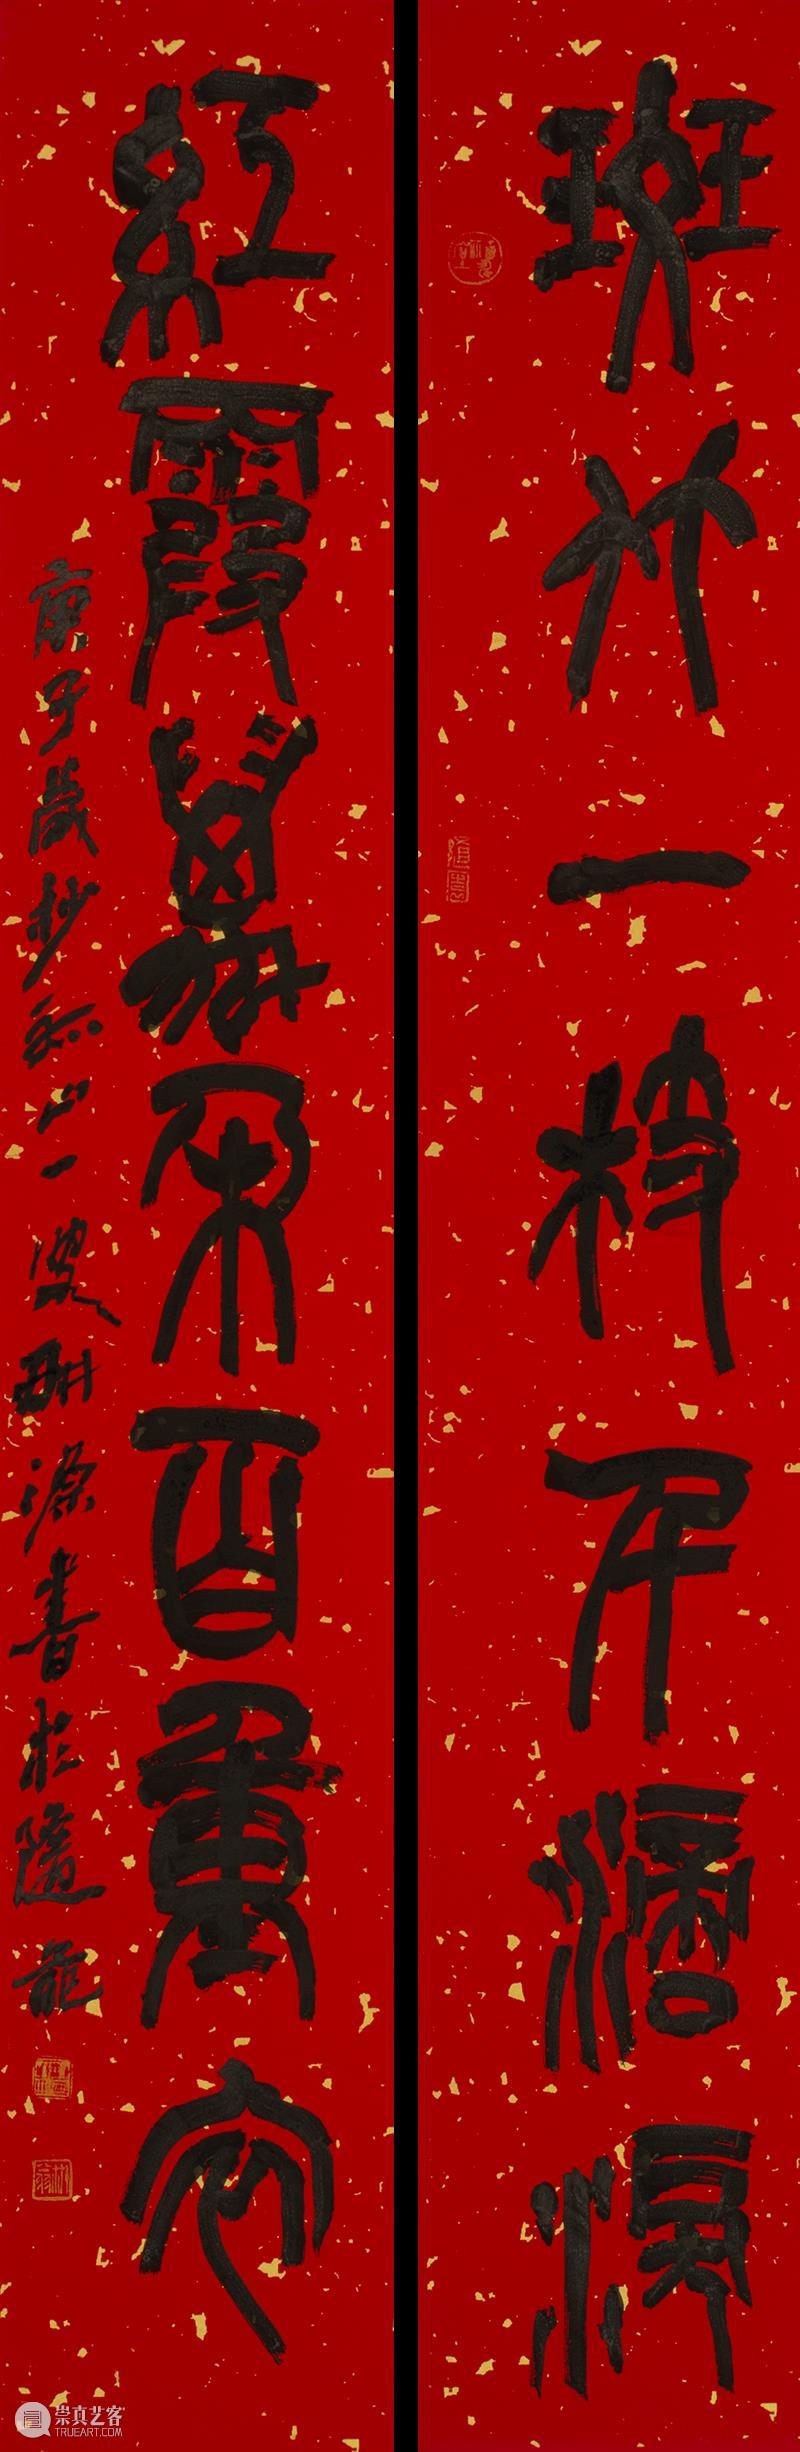 斑竹一枝千滴淚
紅霞萬朵百重衣
庚子歲杪孤山一叟耕源書於隨龕
崇真艺客
TRUEART.COM